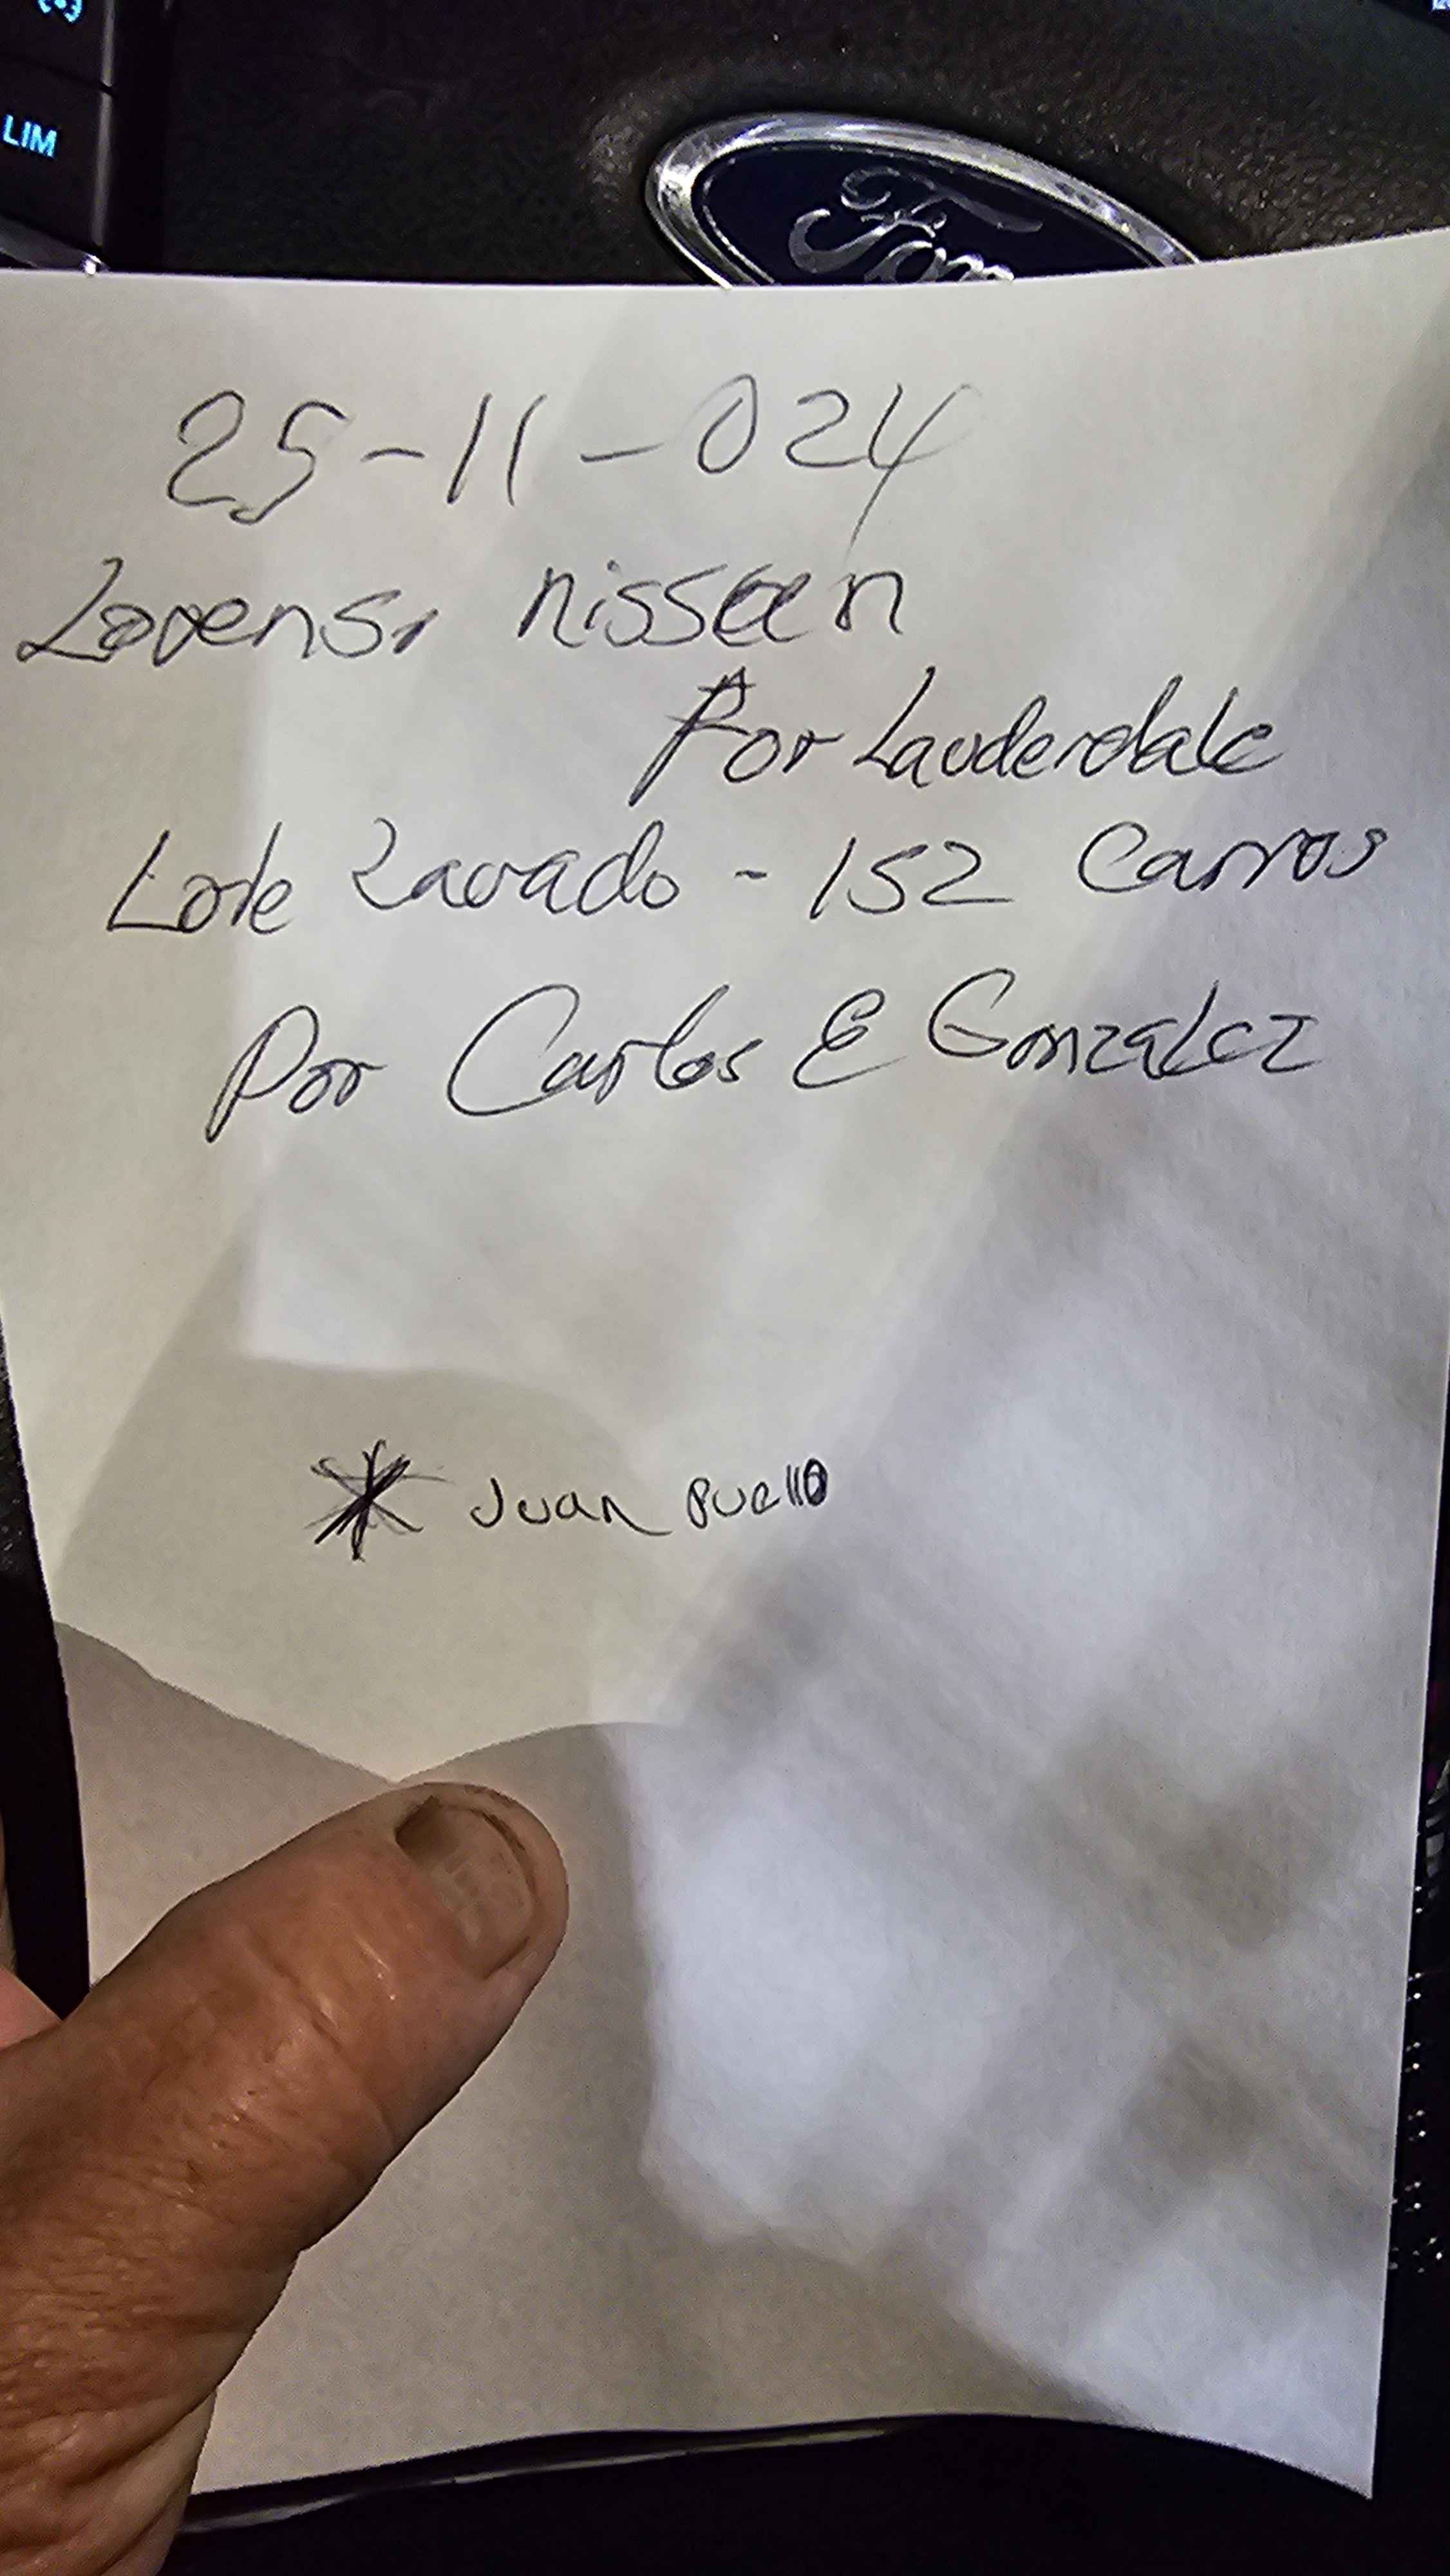 LIM
Ford
25-11-024
Lorens, nissan
For Lauderdale
Lote Lavado - 152 Carros
Por Carlos E Gonzalez
* Juan Puello